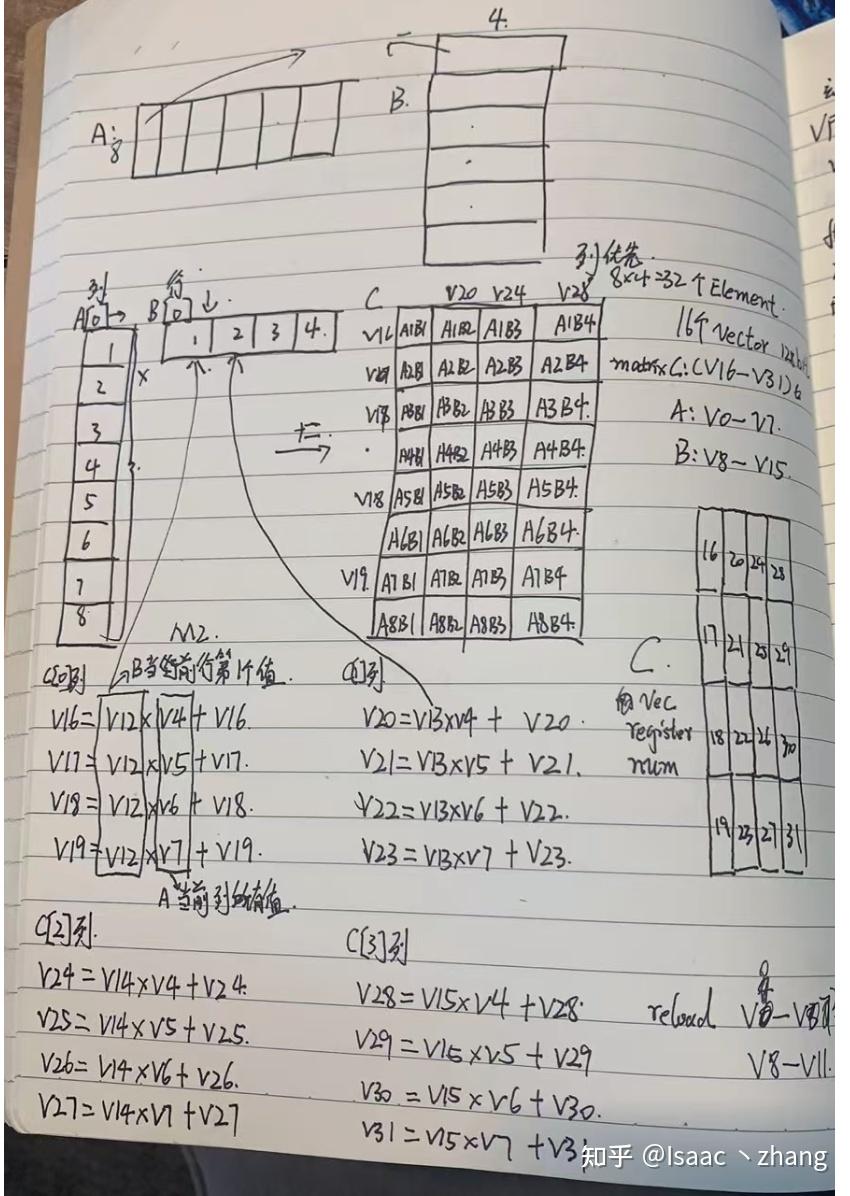 4.
A:
8
B.
列
A[0]→
行
B[0]
C
V20 V24 V28
列优先.
8x4=32个Element.
16个Vector
matrixC:(V16-V31)
A: V0-V7.
B: V8-V15.
1
2
3
4
5
6
7
8
x
1 2 3 4.
+=
V16 A1B1 A1B2 A1B3 A1B4
A2B1 A2B2 A2B3 A2B4
V18 A3B1 A3B2 A3B3 A3B4.
A4B1 A4B2 A4B3 A4B4.
V18 A5B1 A5B2 A5B3 A5B4.
A6B1 A6B2 A6B3 A6B4.
V19. A7B1 A7B2 A7B3 A7B4
A8B1 A8B2 A8B3 A8B4.
16 20 24 28
17 21 25 29
18 22 26 30
19 23 27 31
C.
的Vec
register
num
M2.
C[0]列
B当前行第1个值.
V16=V12xV4+V16.
V17=V12xV5+V17.
V18=V12xV6+V18.
V19=V12xV7+V19.
A当前列所有值.
C[1]列
V20=V13xV4+V20.
V21=V13xV5+V21.
V22=V13xV6+V22.
V23=V13xV7+V23.
C[2]列.
V24=V14xV4+V24.
V25=V14xV5+V25.
V26=V14xV6+V26.
V27=V14xV7+V27
C[3]列
V28=V15xV4+V28.
V29=V15xV5+V29
V30=V15xV6+V30.
V31=V15xV7+V31
reload
V8-V11.
知乎 @Isaac丶zhang